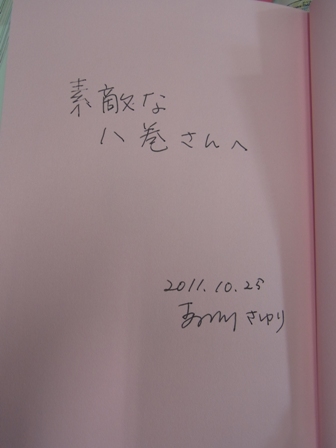 素敵な
八巻さんへ
2011.10.25
さゆり